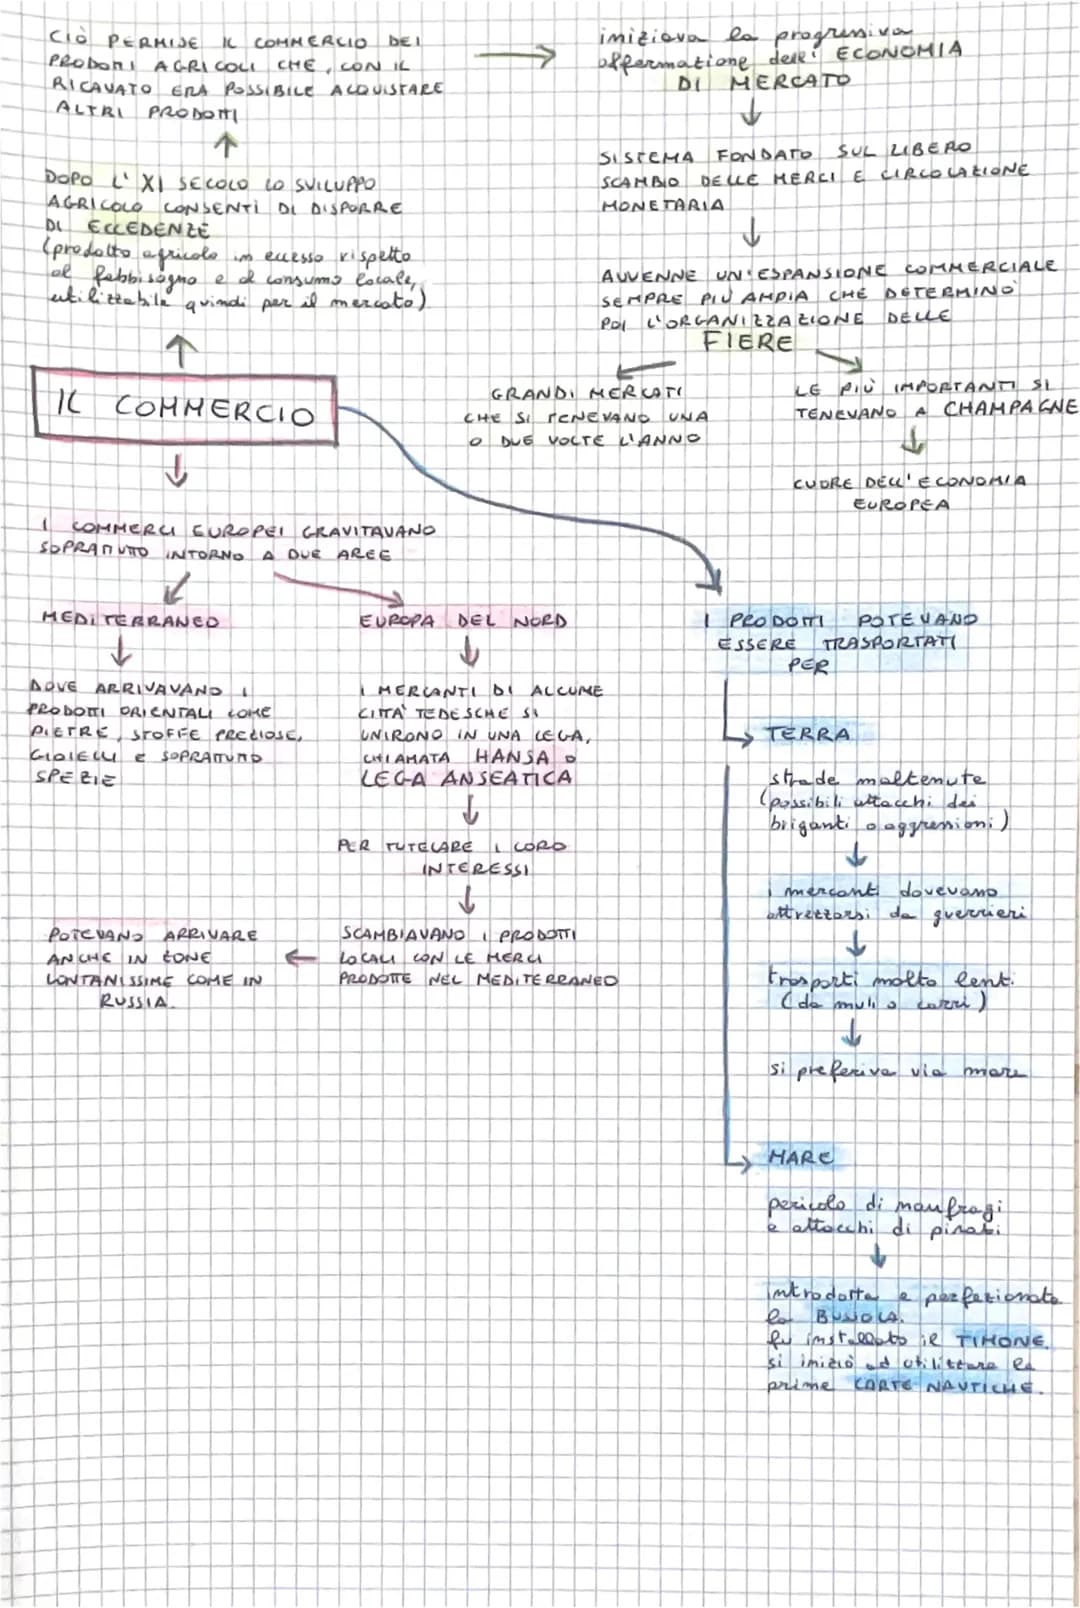 CIÒ PERMISE IL COMMERCIO DEI
PRODOTTI AGRICOLI CHE, CON IL
RICAVATO ERA POSSIBILE ACQUISTARE
ALTRI PRODOTTI
iniziava la progressiva
affermazione dell' ECONOMIA
DI MERCATO
SISTEMA FONDATO SUL LIBERO
SCAMBIO DELLE MERCI E CIRCOLAZIONE
MONETARIA
AVVENNE UN'ESPANSIONE COMMERCIALE
SEMPRE PIÙ AMPIA CHE DETERMINÒ
POI L'ORGANIZZAZIONE DELLE
FIERE
GRANDI MERCATI
CHE SI TENEVANO UNA
O DUE VOLTE L'ANNO
LE PIÙ IMPORTANTI SI
TENEVANO A CHAMPAGNE
CUORE DELL'ECONOMIA
EUROPEA
DOPO L'XI SECOLO LO SVILUPPO
AGRICOLO CONSENTÌ DI DISPORRE
DI ECCEDENZE
(prodotto agricolo in eccesso rispetto
al fabbisogno e al consumo locale,
utilizzabile quindi per il mercato)
IL COMMERCIO
I COMMERCI EUROPEI GRAVITAVANO
SOPRATTUTTO INTORNO A DUE AREE
MEDITERRANEO
DOVE ARRIVAVANO I
PRODOTTI ORIENTALI COME
PIETRE, STOFFE PREZIOSE,
GIOIELLI E SOPRATTUTTO
SPEZIE
EUROPA DEL NORD
I MERCANTI DI ALCUNE
CITTÀ TEDESCHE SI
UNIRONO IN UNA LEGA,
CHIAMATA HANSA O
LEGA ANSEATICA
PER TUTELARE I LORO
INTERESSI
SCAMBIAVANO I PRODOTTI
LOCALI CON LE MERCI
PRODOTTE NEL MEDITERRANEO
POTEVANO ARRIVARE
ANCHE IN ZONE
LONTANISSIME COME IN
RUSSIA.
I PRODOTTI POTEVANO
ESSERE TRASPORTATI
PER
TERRA
strade maltenute
(possibili attacchi dei
briganti o aggressioni)
i mercanti dovevano
attrezzarsi da guerrieri
trasporti molto lenti
(da muli o carri)
si preferiva via mare
MARE
pericolo di naufragi
e attacchi di pirati
introdotta e perfezionata
la BUSSOLA.
fu installato il TIMONE.
si iniziò ad utilizzare le
prime CARTE NAUTICHE.